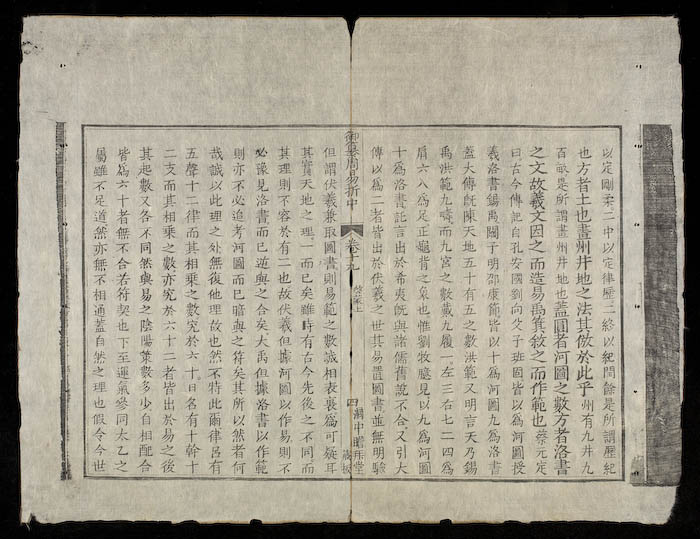 以定剛柔二中以定律歷二終以紀閏餘是所謂歷紀
也方者土也畫州井地之法其倣於此乎州有九井九
百畝是所謂畫州井地也蓋圓者河圖之數方者洛書
之文故羲文因之而造易禹箕敘之而作範也蔡元定
曰古今傳記自孔安國劉向父子班固皆以為河圖授
羲洛書錫禹關子明邵康節皆以十為河圖九為洛書
蓋大傳旣陳天地五十有五之數洪範又明言天乃錫
禹洪範九疇而九宮之數戴九履一左三右七二四為
肩六八為足正龜背之象也惟劉牧臆見以九為河圖
十為洛書託言出於希夷旣與諸儒舊說不合又引大
傳以為二者皆出於伏羲之世其易置圖書並無明驗
御纂周易折中
卷十九
啓蒙上
四
中贈拜堂
藏板
但謂伏羲兼取圖書則易範之數誠相表裏為可疑耳
其實天地之理一而已矣雖時有古今先後之不同而
其理則不容於有二也故伏羲但據河圖以作易則不
必豫見洛書而已逆與之合矣大禹但據洛書以作範
則亦不必追考河圖而已暗與之符矣其所以然者何
哉誠以此理之外無復他理故也然不特此爾律呂有
五聲十二律而其相乘之數究於六十日名有十幹十
二支而其相乘之數亦究於六十二者皆出於易之後
其起數又各不同然與易之陰陽策數多少自相配合
皆為六十者無不合若符契也下至運氣參同太乙之
屬雖不足道然亦無不相通蓋自然之理也假令今世